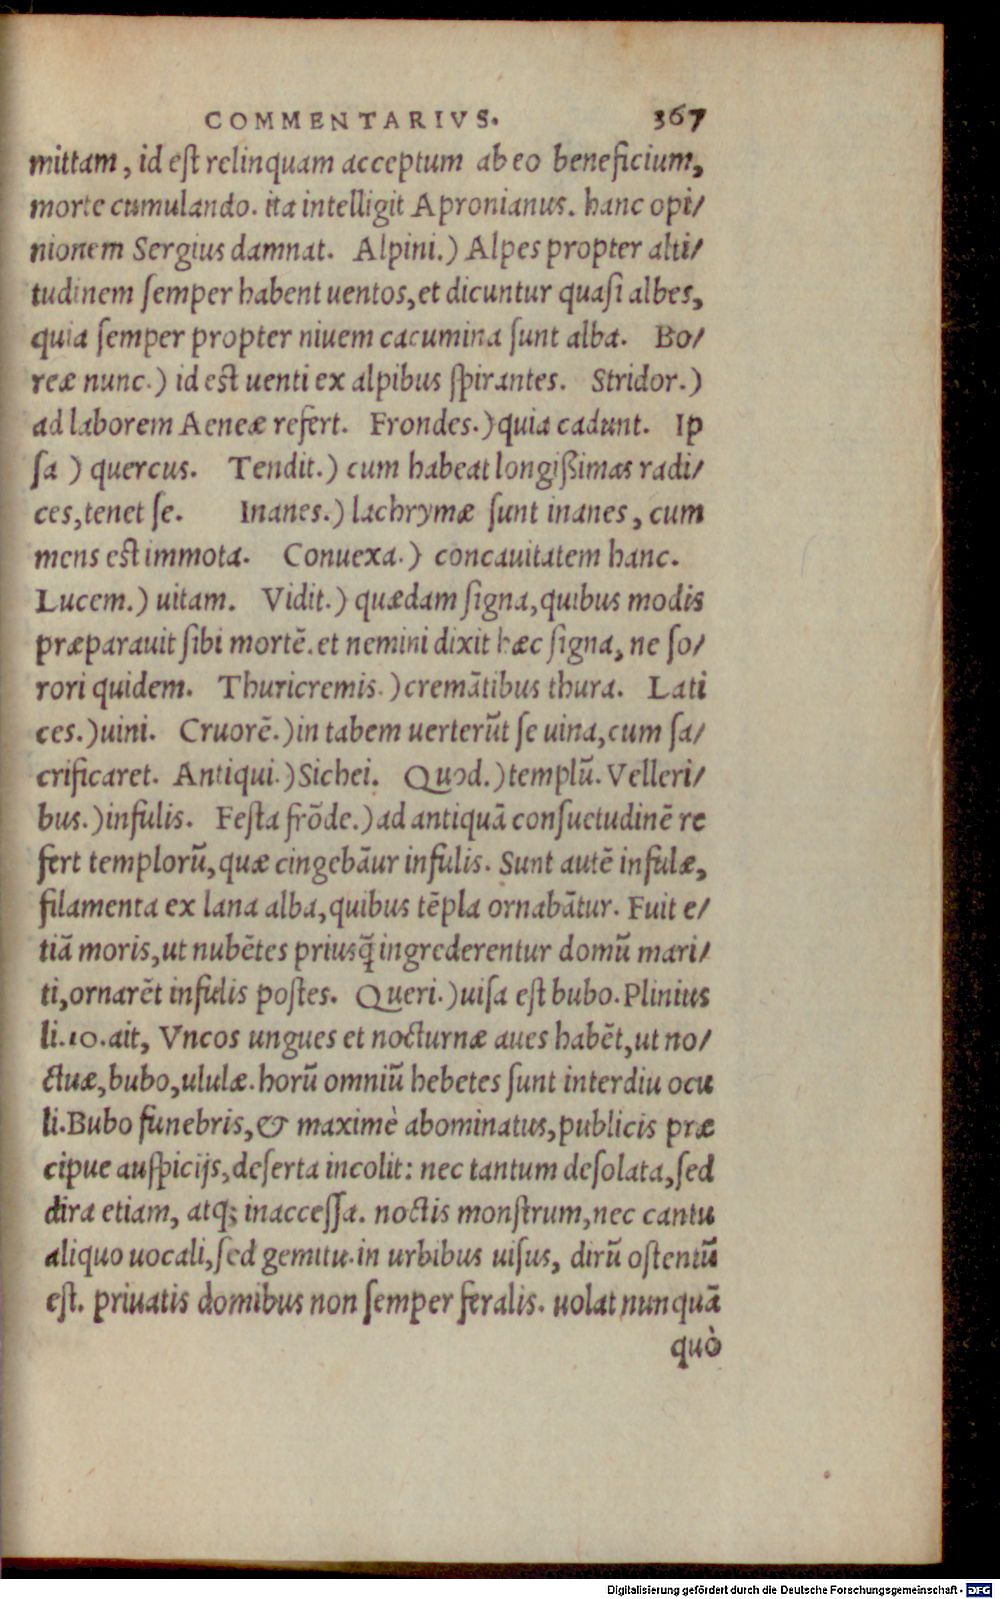 COMMENTARIVS. 367
mittam, id est relinquam acceptum ab eo beneficium,
morte cumulando. ita intelligit Apronianus. hanc opi/
nionem Sergius damnat. Alpini.) Alpes propter alti/
tudinem semper habent uentos, et dicuntur quasi albes,
quia semper propter niuem cacumina sunt alba. Bo/
reæ nunc.) id est uenti ex alpibus spirantes. Stridor.)
ad laborem Aeneæ refert. Frondes.) quia cadunt. Ip
sa ) quercus. Tendit.) cum habeat longißimas radi/
ces, tenet se. Inanes.) lachrymæ sunt inanes, cum
mens est immota. Conuexa.) concauitatem hanc.
Lucem.) uitam. Vidit.) quædam signa, quibus modis
præparauit sibi mortē. et nemini dixit hæc signa, ne so/
rori quidem. Thuricremis.) cremātibus thura. Lati
ces.) uini. Cruorē.) in tabem uerterūt se uina, cum sa/
crificaret. Antiqui.) Sichei. Quod.) templū. Velleri/
bus.) infulis. Festa frōde.) ad antiquā consuetudinē re
fert templorū, quæ cingebāur infulis. Sunt autē infulæ,
filamenta ex lana alba, quibus tēpla ornabātur. Fuit e/
tiā moris, ut nubētes priusq̄ ingrederentur domū mari/
ti, ornarēt infulis postes. Queri.) uisa est bubo. Plinius
li. 10. ait, Vncos ungues et nocturnæ aues habēt, ut no/
ctuæ, bubo, ululæ. horū omniū hebetes sunt interdiu ocu
li. Bubo funebris, & maximè abominatus, publicis præ
cipue auspicijs, deserta incolit: nec tantum desolata, sed
dira etiam, atq; inaccessa. noctis monstrum, nec cantu
aliquo uocali, sed gemitu. in urbibus uisus, dirū ostentū
est. priuatis domibus non semper feralis. uolat nunquā
quò
Digitalisierung gefördert durch die Deutsche Forschungsgemeinschaft - DFG